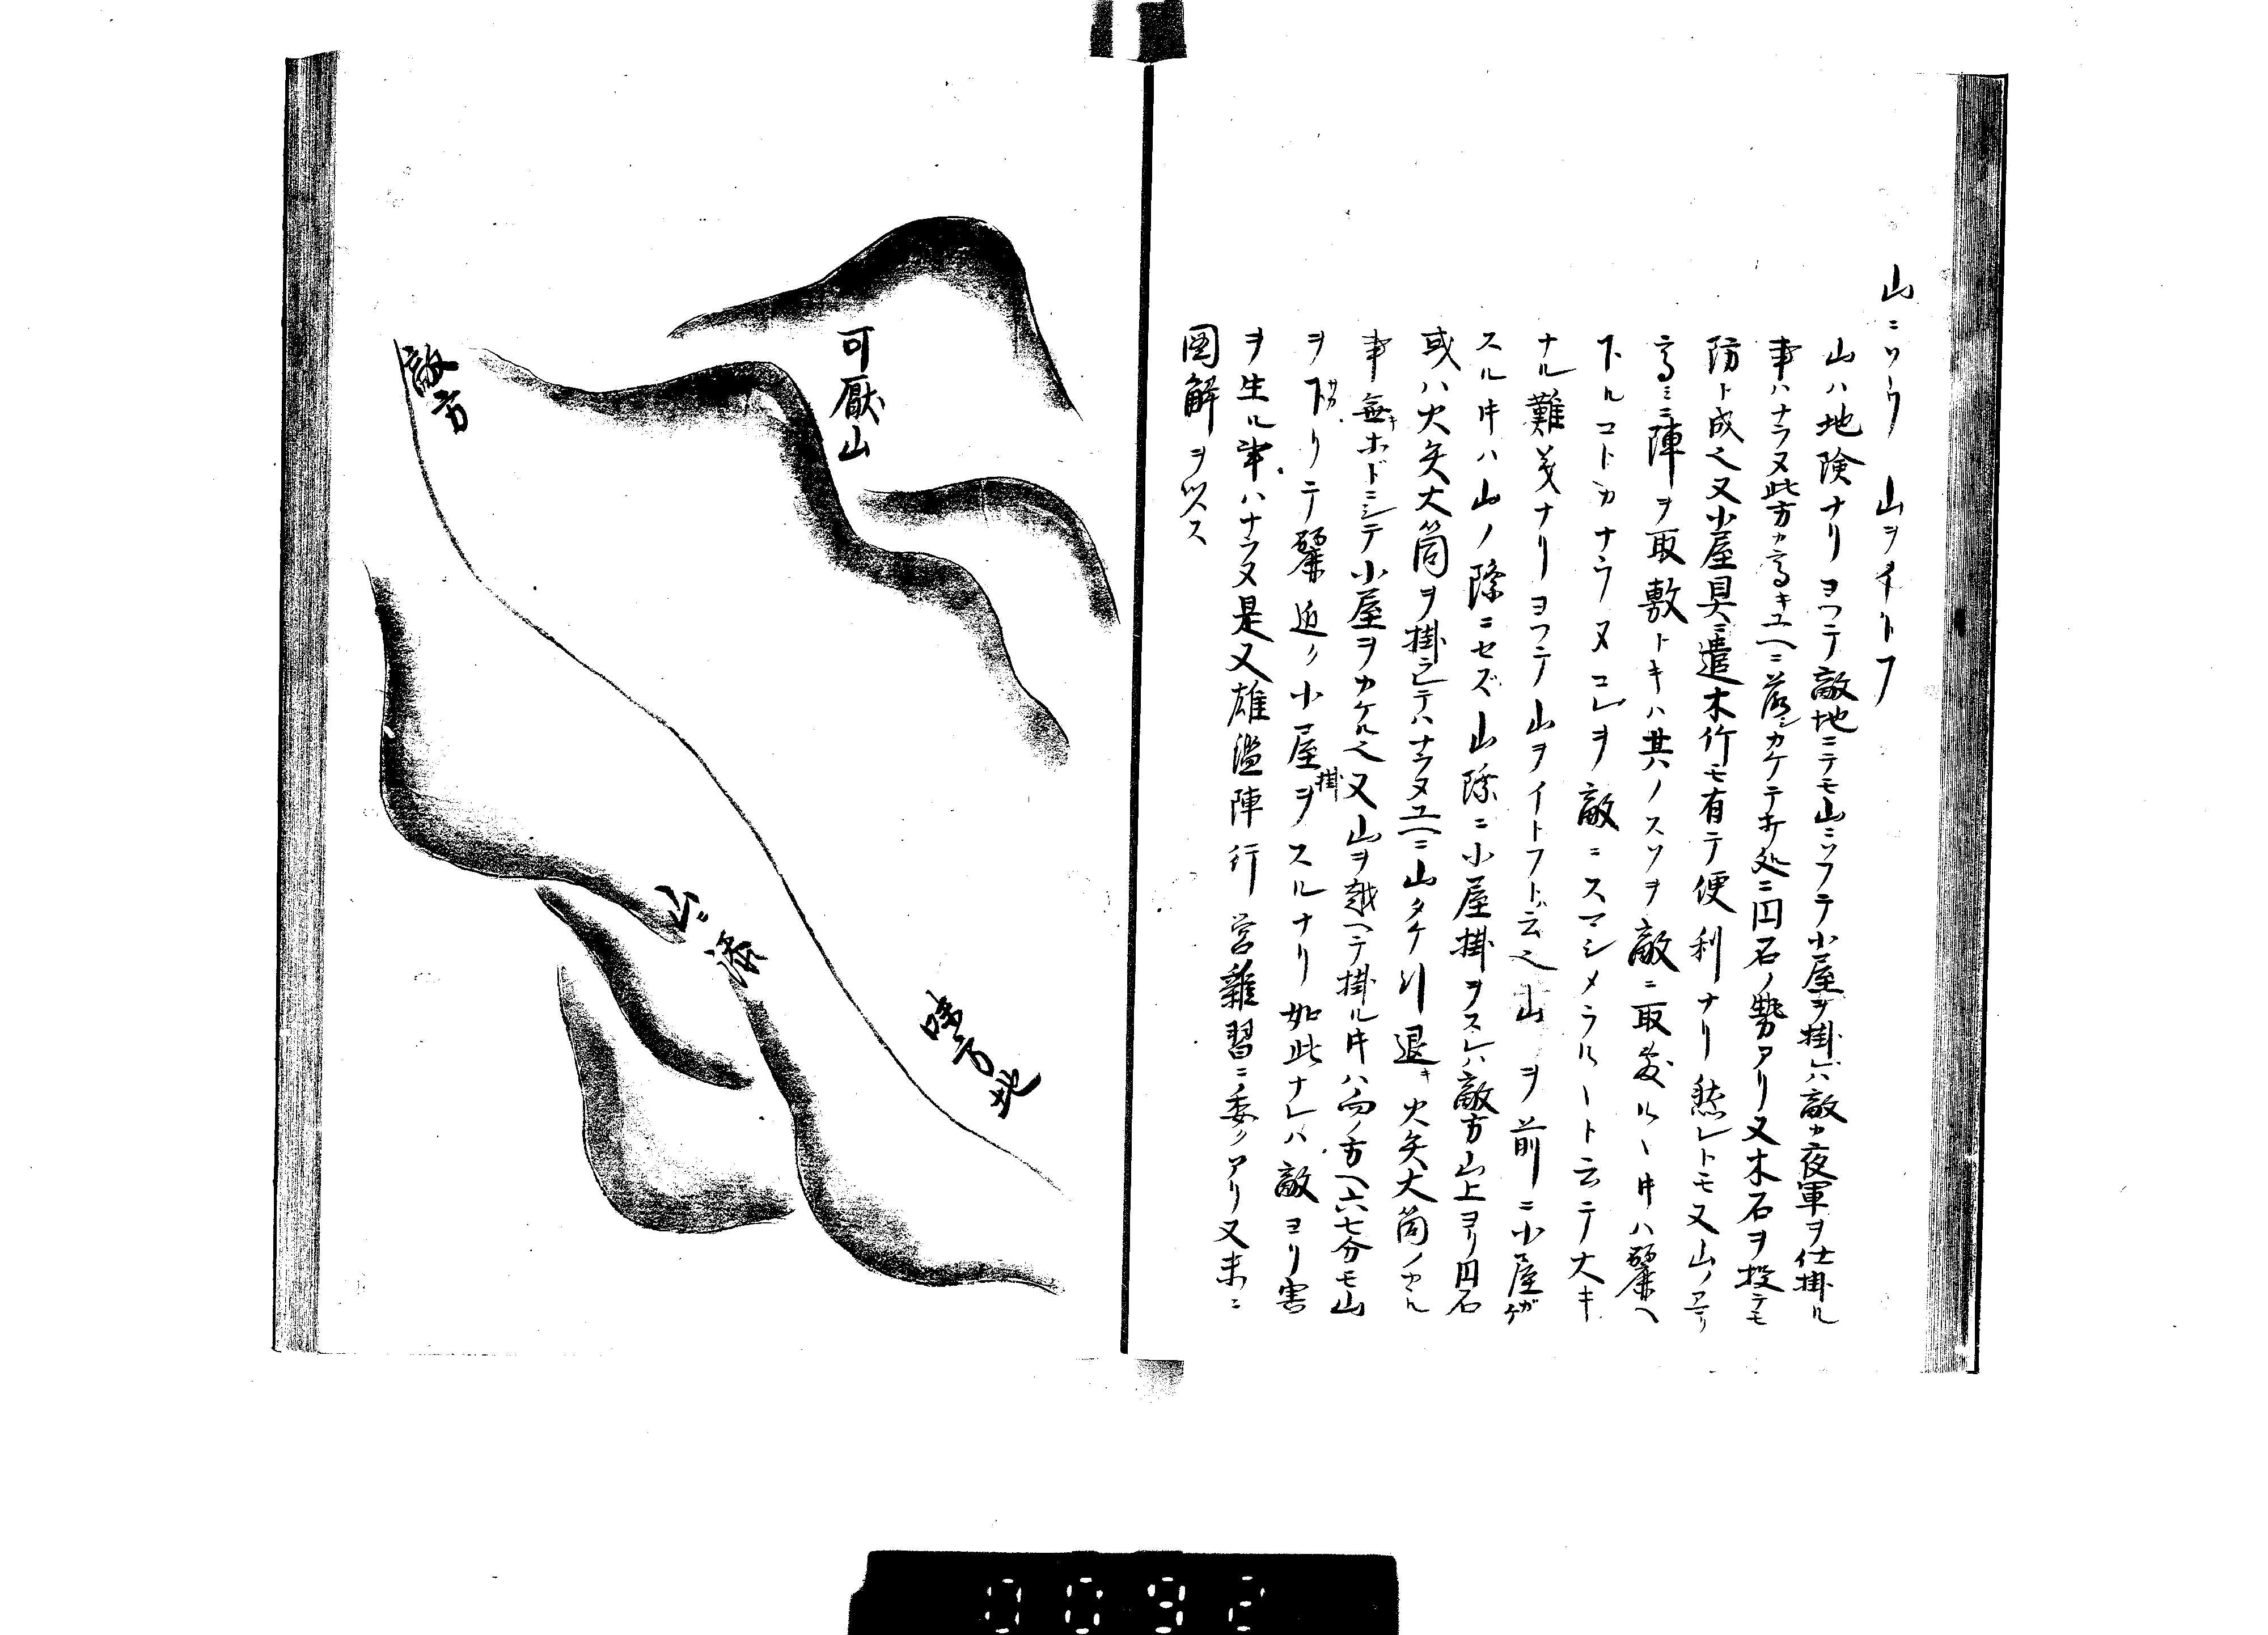 山ニソフ 山ヲイトフ
山ハ地険ナリヨツテ敵地ニテモ山ニソフテ小屋ヲ掛レハ敵カ夜軍ヲ仕掛ル
事ハナラヌ此方カ高キユヘニ落シカケテキ処ニ円石ノ勢アリ又木石ヲ投テモ
防ト成也又小屋具ニ遣木竹モ有テ便利ナリ然レトモ又山ノ
高ミニ陣ヲ取敷トキハ其ノスソヲ敵ニ取敷ルヽ時ハ麓ヘ
下ルコトカナラヌコレヲ敵ニスマシメラルヽト云テ大キ
ナル難義ナリヨツテ山ヲイトフト云也山ヲ前ニ小屋ガケ
スル時ハ山ノ際ニセズ山際ニ小屋掛ヲスレハ敵方山上ヨリ円石
或ハ火矢大筒ヲ掛ラレテハナラヌユヘニ山タケ引退キ火矢大筒ノ当ル
事無キホドニシテ小屋ヲカケル也又山ヲ越ヘテ掛ル時ハ向ノ方ヘ六七分モ山
ヲ下カリテ麓近ク小屋掛ヲスルナリ如此ナレハ敵ヨリ害
ヲ生ル事ハナラヌ是又雄鑑陣行営雜習ニ委クアリ又末ニ
図解ヲツス
可厭山
敵方
山ニ添
味方地
0092